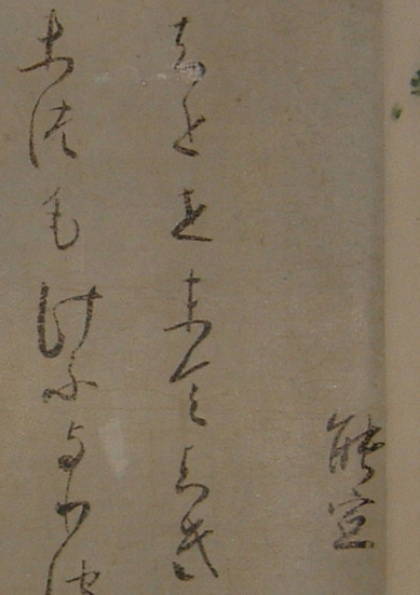 能宣
ちとせまてかき
まつもけふよりは